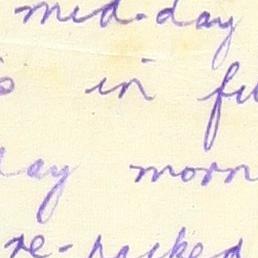 mid-day
s in fu
day morn
re-packed